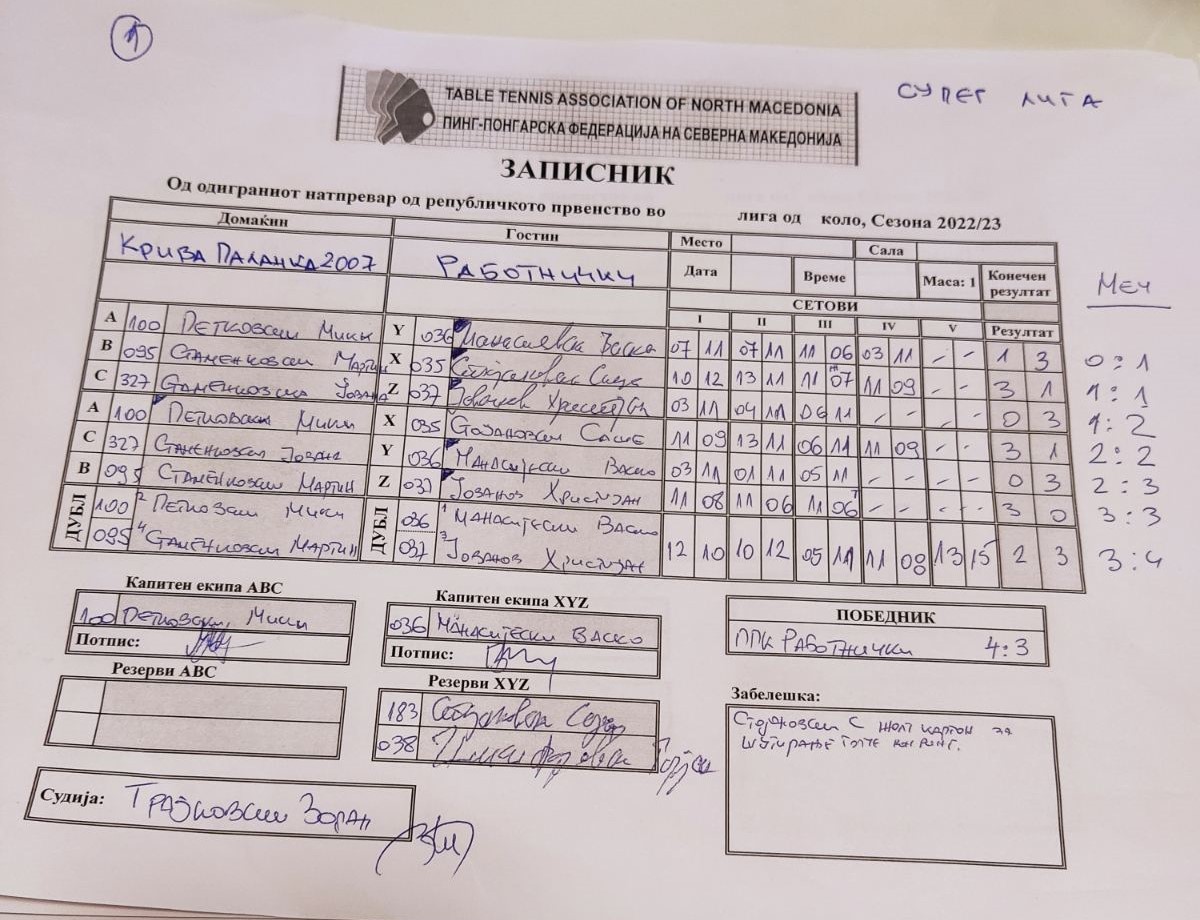 1
СУПЕР ЛИГА
TABLE TENNIS ASSOCIATION OF NORTH MACEDONIA
ПИНГ-ПОНГАРСКА ФЕДЕРАЦИЈА НА СЕВЕРНА МАКЕДОНИЈА
ЗАПИСНИК
Од одиграниот натпревар од републичкото првенство во лига од коло, Сезона 2022/23
Домаќин Гостин Место Сала
КРИВА ПАЛАНКА 2007 РАБОТНИЧКИ Дата Време Маса: 1 Конечен резултат МЕЧ
СЕТОВИ
I II III IV V Резултат
A 100 ПЕТКОВСКИ МИКИ Y 036 Манасиевски Васко 07 11 07 11 11 06 03 11 - - 1 3 0:1
B 095 СТАМЕНКОВСКИ МАРТИН X 035 Стојановски Саше 10 12 13 11 11 07 11 09 - - 3 1 1:1
C 327 СТАМЕНКОВСКА ЈОВАНА Z 037 Јованов Христијан 03 11 04 11 06 11 - - - - 0 3 1:2
A 100 ПЕТКОВСКИ МИКИ X 035 СТОЈАНОВСКИ САШЕ 11 09 13 11 06 11 11 09 - - 3 1 2:2
C 327 СТАМЕНКОВСКА ЈОВАНА Y 036 МАНАСИЈЕСКИ ВАСКО 03 11 01 11 05 11 - - - - 0 3 2:3
B 095 СТАМЕНКОВСКИ МАРТИН Z 037 ЈОВАНОВ ХРИСТИЈАН 11 08 11 06 11 06 - - - - 3 0 3:3
ДУБЛ 100 2 ПЕТКОВСКИ МИКИ ДУБЛ 036 1 МАНАСИЈЕСКИ ВАСКО
095 4 СТАМЕНКОВСКИ МАРТИН 037 3 ЈОВАНОВ ХРИСТИЈАН 12 10 10 12 05 11 11 08 13 15 2 3 3:4
Капитен екипа ABC
100 ПЕТКОВСКИ, МИКИ
Потпис:
Резерви ABC
Капитен екипа XYZ
036 МАНАСИЈЕСКИ ВАСКО
Потпис:
Резерви XYZ
183
038
ПОБЕДНИК
ППК РАБОТНИЧКИ 4:3
Забелешка:
СТОЈАНОВСКИ С ЖОЛТ КАРТОН ЗА
ШУТИРАЊЕ
Судија: ТРАЈКОВСКИ ЗОРАН